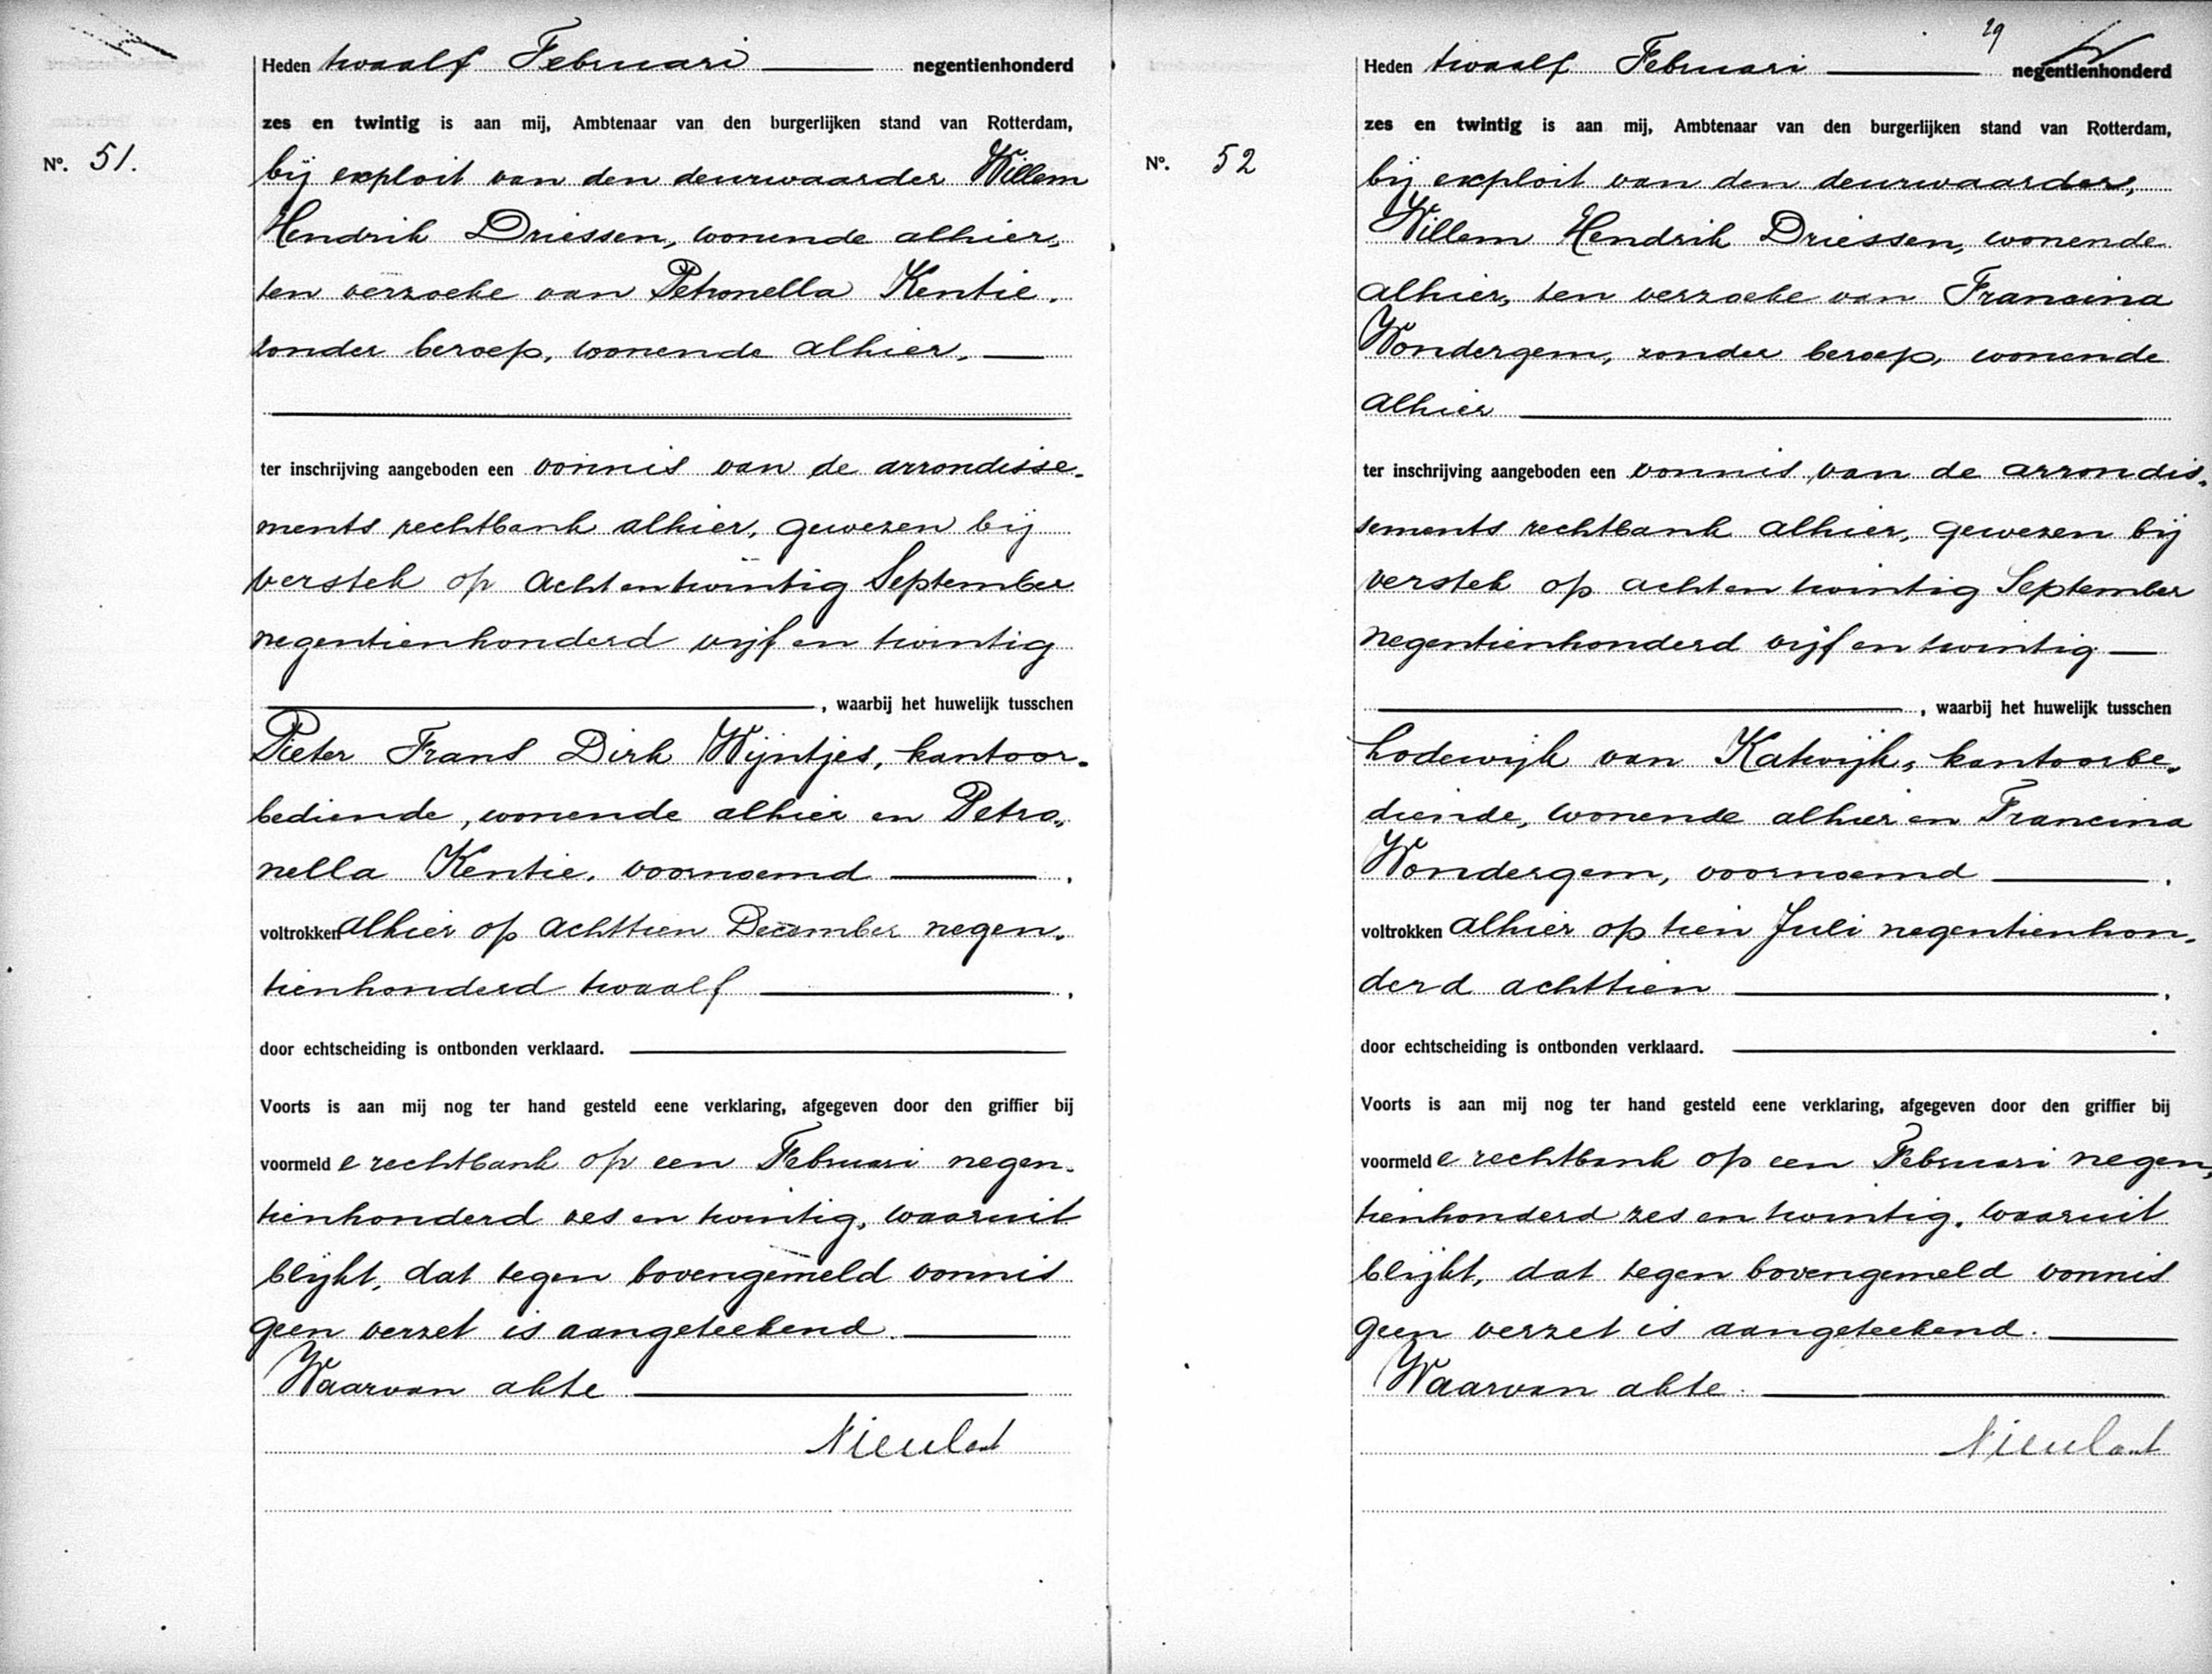 Heden twaalf Februari negentienhonderd
zes en twintig is aan mij, Ambtenaar van den burgerlijken stand van Rotterdam,
Nº. 51.
bij exploit van den deurwaarder Willem
Hendrik Driessen, wonende alhier,
ten verzoeke van Petronella Kentie,
zonder beroep, wonende alhier,
ter inschrijving aangeboden een vonnis van de arrondisse-
ments rechtbank alhier, gewezen bij
verstek op achtentwintig September
negentienhonderd vijf en twintig
, waarbij het huwelijk tusschen
Pieter Frans Dirk Wijntjes, kantoor-
bediende, wonende alhier en Petro-
nella Kentie, voornoemd
voltrokken alhier op achttien December negen-
tienhonderd twaalf
door echtscheiding is ontbonden verklaard.
Voorts is aan mij nog ter hand gesteld eene verklaring, afgegeven door den griffier bij
voormelde rechtbank op een Februari negen-
tienhonderd zes en twintig, waaruit
blijkt, dat tegen bovengemeld vonnis
geen verzet is aangeteekend.
Waarvan akte
Nieulant
29
Heden twaalf Februari negentienhonderd
zes en twintig is aan mij, Ambtenaar van den burgerlijken stand van Rotterdam,
Nº. 52
bij exploit van den deurwaarder,
Willem Hendrik Driessen, wonende
alhier, ten verzoeke van Francina
Wondergem, zonder beroep, wonende
alhier
ter inschrijving aangeboden een vonnis van de arrondis-
sements rechtbank alhier, gewezen bij
verstek op achtentwintig September
negentienhonderd vijf en twintig
, waarbij het huwelijk tusschen
Lodewijk van Katwijk, kantoorbe-
diende, wonende alhier en Francina
Wondergem, voornoemd
voltrokken alhier op tien Juli negentienhon-
derd achttien
door echtscheiding is ontbonden verklaard.
Voorts is aan mij nog ter hand gesteld eene verklaring, afgegeven door den griffier bij
voormelde rechtbank op een Februari negen-
tienhonderd zes en twintig, waaruit
blijkt, dat tegen bovengemeld vonnis
geen verzet is aangeteekend.
Waarvan akte.
Nieulant